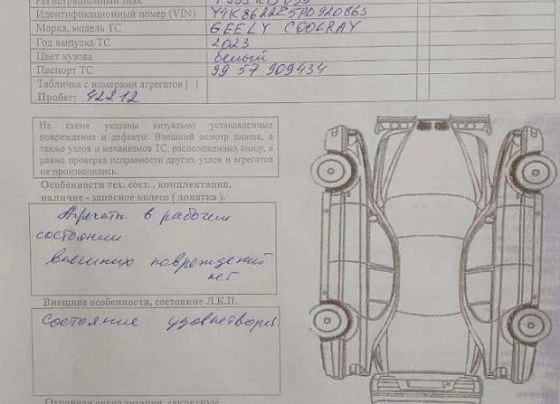 Регистрационный знак
Идентификационный номер (VIN)
Марка, модель ТС GEELY COOLRAY
Год выпуска ТС 2023
Цвет кузова белый
Паспорт ТС 99 57 909434
Табличка с номерами агрегатов | |
Пробег: 42212
На схеме указаны визуально установленные
повреждения и дефекты. Внешний осмотр днища, а
также узлов и механизмов ТС, расположенных снизу, а
равно проверка исправности других узлов и агрегатов
не производились.
Особенности тех. сост., комплектации,
наличие - запасное колесо ( докатка ).
Агрегаты в рабочем
состоянии
внешних повреждений
нет
Внешние особенности, состояние Л.К.П.
состояние удовлетвор.
Охранная сигнализация, секретные